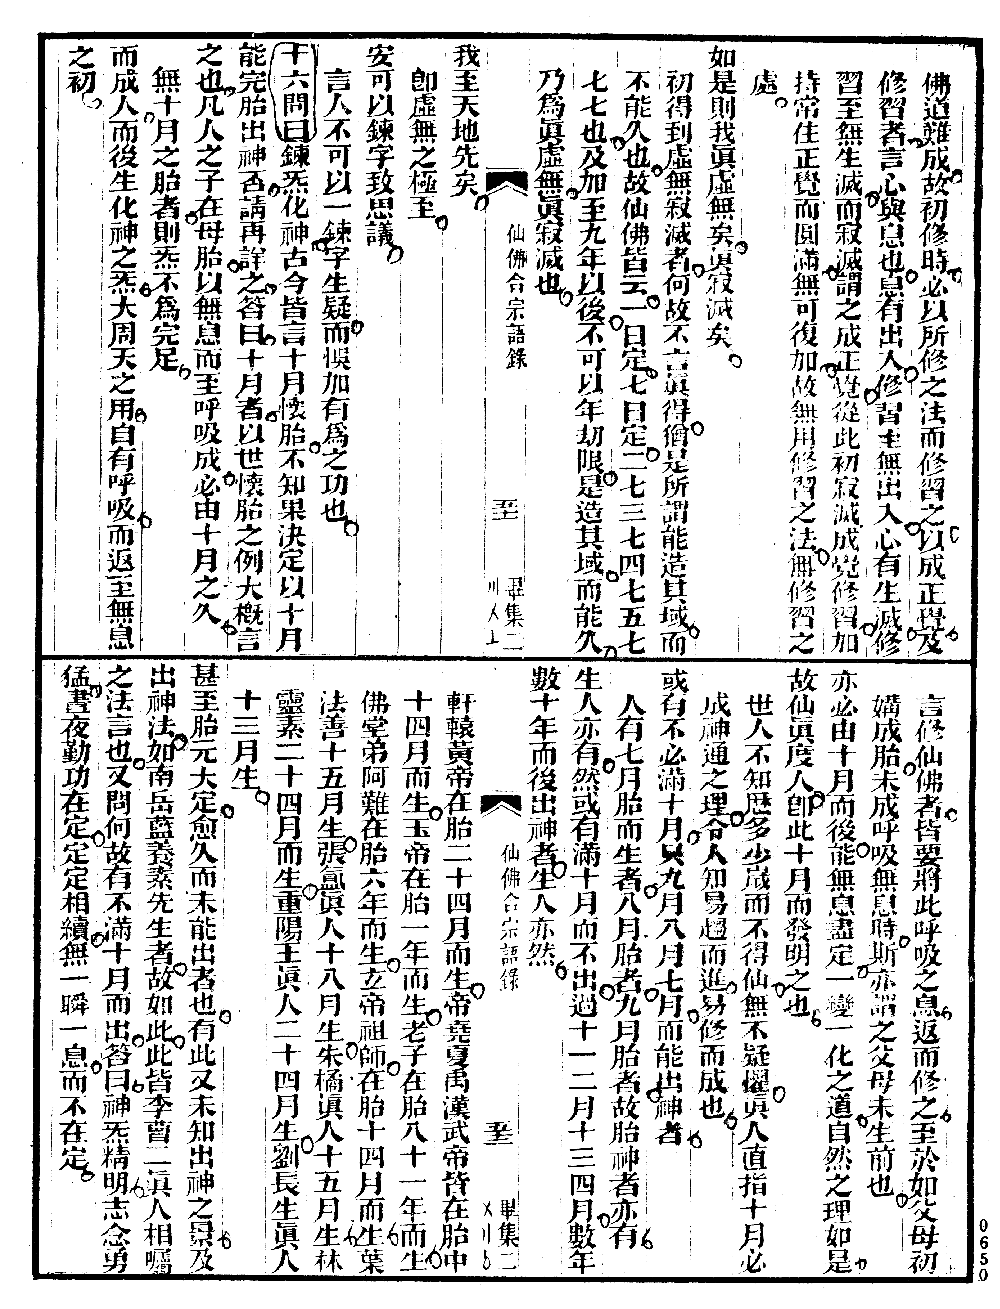 佛道難成故初修時必以所修之法而修習之以成正覺及
修習者言心與息也息有出入修習至無出入心有生滅修
習至無生滅而寂滅謂之成正覺從此初寂滅成覺修習如
持常住正覺而圓滿無可復加故無用修習之法無修習之
處
如是則我眞虛無矣眞寂滅矣
初得到虛無寂滅者何故不言眞得僧是所謂能造其域而
不能久也故仙佛皆云一日定七日定二七三七四七五七
七七也及加至九年以後不可以年劫限是造其域而能久
乃爲眞虛無眞寂滅也
仙佛合宗語錄
畢集二
我至天地先矣
卽虛無之極至
安可以鍊字致思議
言人不可以一鍊字生疑而悞加有爲之功也
十六問曰鍊炁化神古今皆言十月懷胎不知果決定以十月
能完胎出神否請再詳之答曰十月者以世懷胎之例大槪言
之也凡人之子在母胎以無息而至呼吸成必由十月之久
無十月之胎者則炁不爲完足
而成人而後生化神之炁大周天之用自有呼吸而返至無息
之初
言修仙佛者皆要將此呼吸之息返而修之至於如父母初
媾成胎未成呼吸無息時斯亦謂之父母未生前也
亦必由十月而後能無息盡定一變一化之道自然之理如是
故仙眞度人卽此十月而發明之也
世人不知歷多少歲而不得仙無不疑懼眞人直指十月必
成神通之理令人知易趨而進易修而成也
或有不必滿十月只九月八月七月而能出神者
人有七月胎而生者八月胎者九月胎者故胎神者亦有
生人亦有然或有滿十月而不出過十一二月十三四月數年
數十年而後出神者生人亦然
仙佛合宗語錄
畢集二
軒轅黃帝在胎二十四月而生帝堯夏禹漢武帝皆在胎中
十四月而生玉帝在胎一年而生老子在胎八十一年而生
佛堂弟阿難在胎六年而生立帝祖師在胎十四月而生葉
法善十五月生張氳眞人十八月生朱橘眞人十五月生林
靈素二十四月而生重陽王眞人二十四月生劉長生眞人
十三月生
甚至胎元大定愈久而未能出者也有此又未知出神之景及
出神法如南岳藍養素先生者故如此此皆李曹二眞人相囑
之法言也又問何故有不滿十月而出答曰神炁精明志念勇
猛晝夜勤功在定定定相續無一瞬一息而不在定
0650